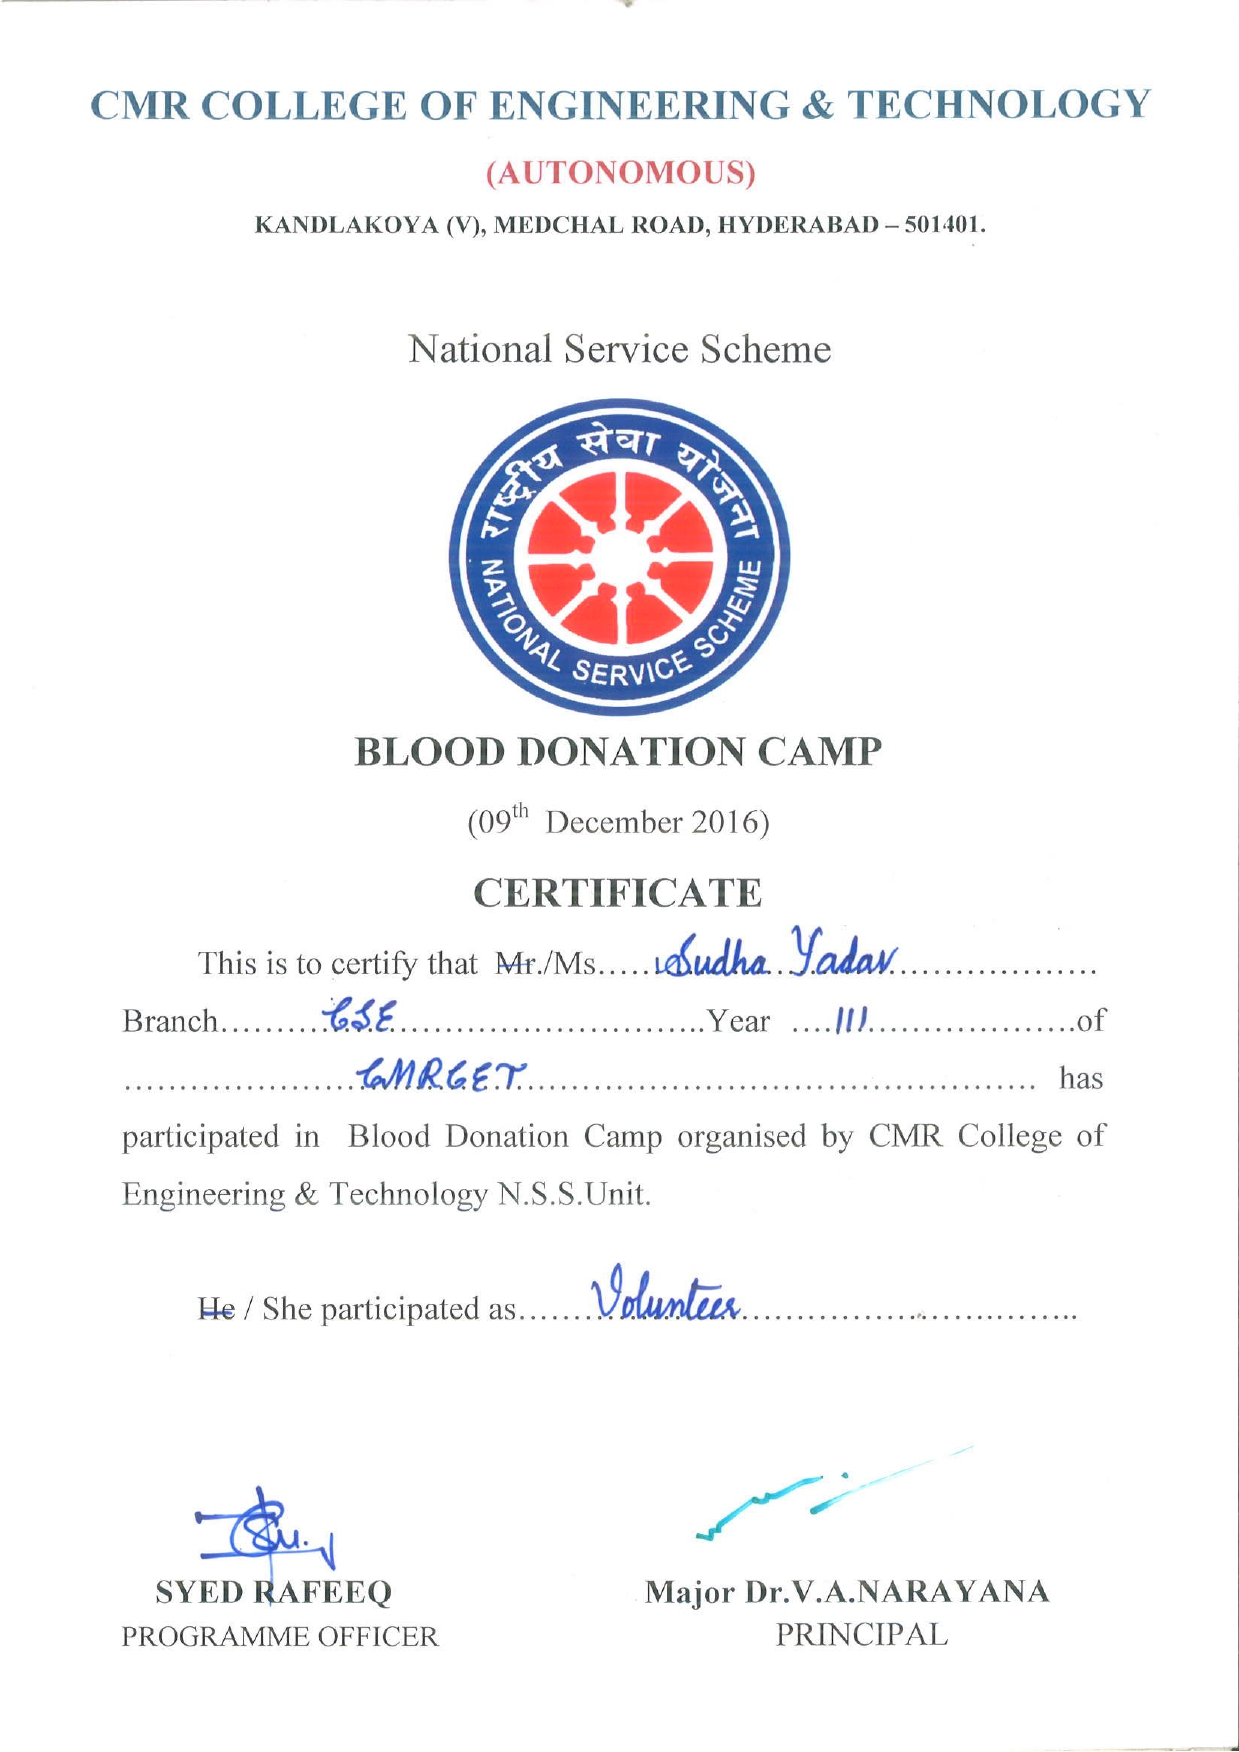 CMR COLLEGE OF ENGINEERING & TECHNOLOGY
(AUTONOMOUS)
KANDLAKOYA (V), MEDCHAL ROAD, HYDERABAD – 501401.
National Service Scheme
राष्ट्रीय सेवा योजना
NATIONAL SERVICE SCHEME
BLOOD DONATION CAMP
(09th December 2016)
CERTIFICATE
This is to certify that Mr./Ms.....Sudha Yadav..................
Branch.........CSE............................Year ....III...................of
....................CMRCET.............................................. has
participated in Blood Donation Camp organised by CMR College of
Engineering & Technology N.S.S.Unit.
He / She participated as......Volunteer..............................
SYED RAFEEQ
PROGRAMME OFFICER
Major Dr.V.A.NARAYANA
PRINCIPAL